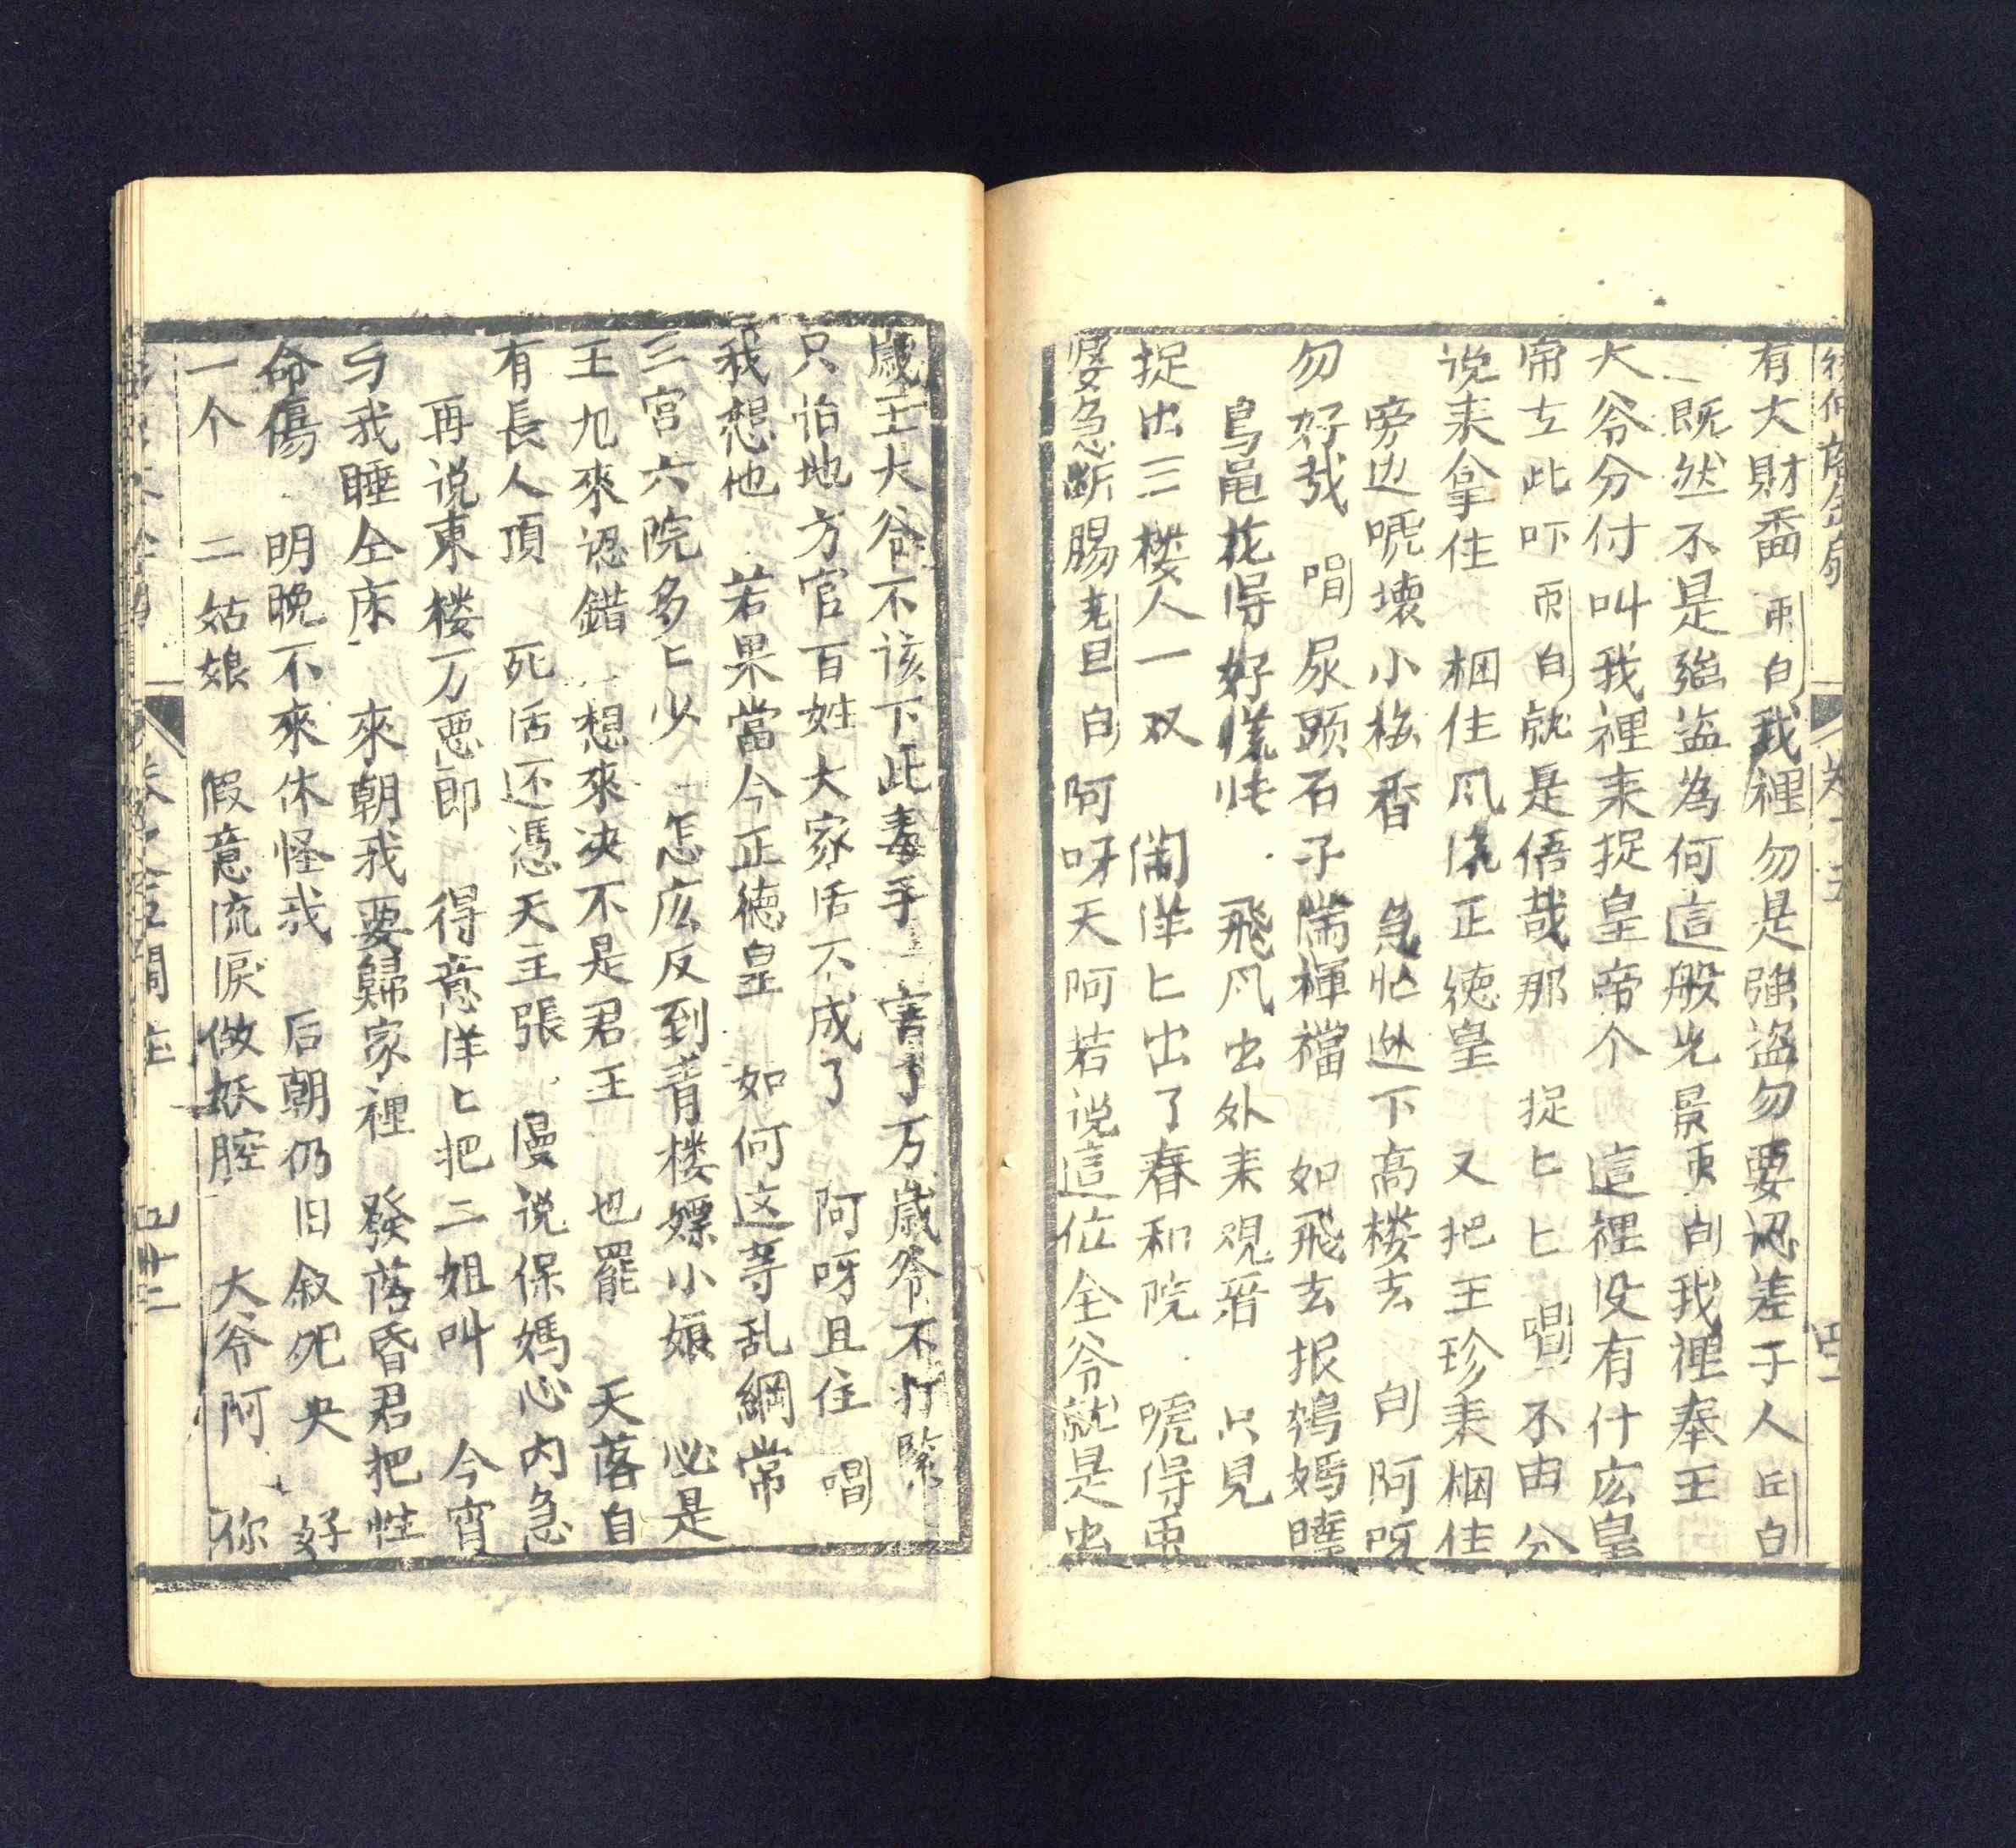 有大財番 丙白 我裡勿是強盜勿要認差子人 丘白
既然不是強盜為何這般光景 丙白 我裡奉王
大爷分付叫我裡来捉皇帝个 這裡没有什広皇
帝士此吓 丙白 就是俉哉那 捉匕匕 唱 不由分
说来拿住 梱住风流正徳皇 又把王珍来梱住
旁边唬壊小梅香 急忙迯下高楼去 白 阿呀
勿好哉 唱 尿頭石子湍褌襠 如飛去报鸨媽曉
鳥黾花得好慌忙 飛风出外来观晋 只見
捉出三楼人一双 閙洋匕出了春和院 唬得乕
婆急断腸 老旦白 阿呀天阿若说這位全爷就是虫
歲王大爷不该下此毒手 害了万歲爷不打緊
只怕地方官百姓大家活不成了 阿呀且住 唱
我想他 若果當今正徳皇 如何这等乱綱常
三宫六院多匕少 怎広反到青楼嫖小娘 必是
王九來認錯 想來决不是君王 也罷 天落自
有長人頂 死活还憑天主張 漫说保媽心内急
再说東楼万惡郎 得意洋匕把二姐叫 今宵
与我睡仝床 來朝我要歸家裡 發落昏君把性
命傷 明晚不來休怪我 后朝仍旧叙死央 好
一个 二姑娘 假意流淚做妖腔 大爷阿 你